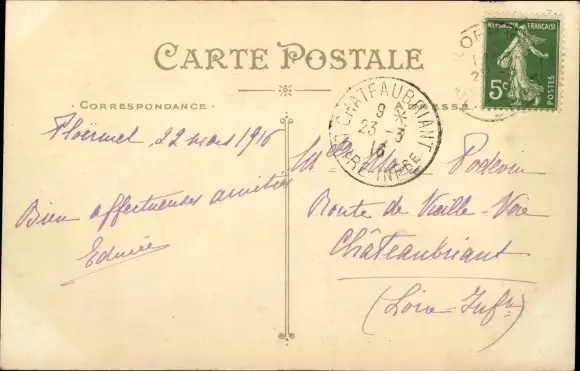 CARTE POSTALE
CORRESPONDANCE
ADRESSE
RÉPUBLIQUE FRANÇAISE
5c
POSTES
CHATEAUBRIANT
9
23 - 3
16
LOIRE INFRE
Ploërmel, 22 mars 1916
Bien affectueuses amitiés
Edmée
Podevin
Route de Vieille-Voie
Châteaubriant
(Loire-Infre)